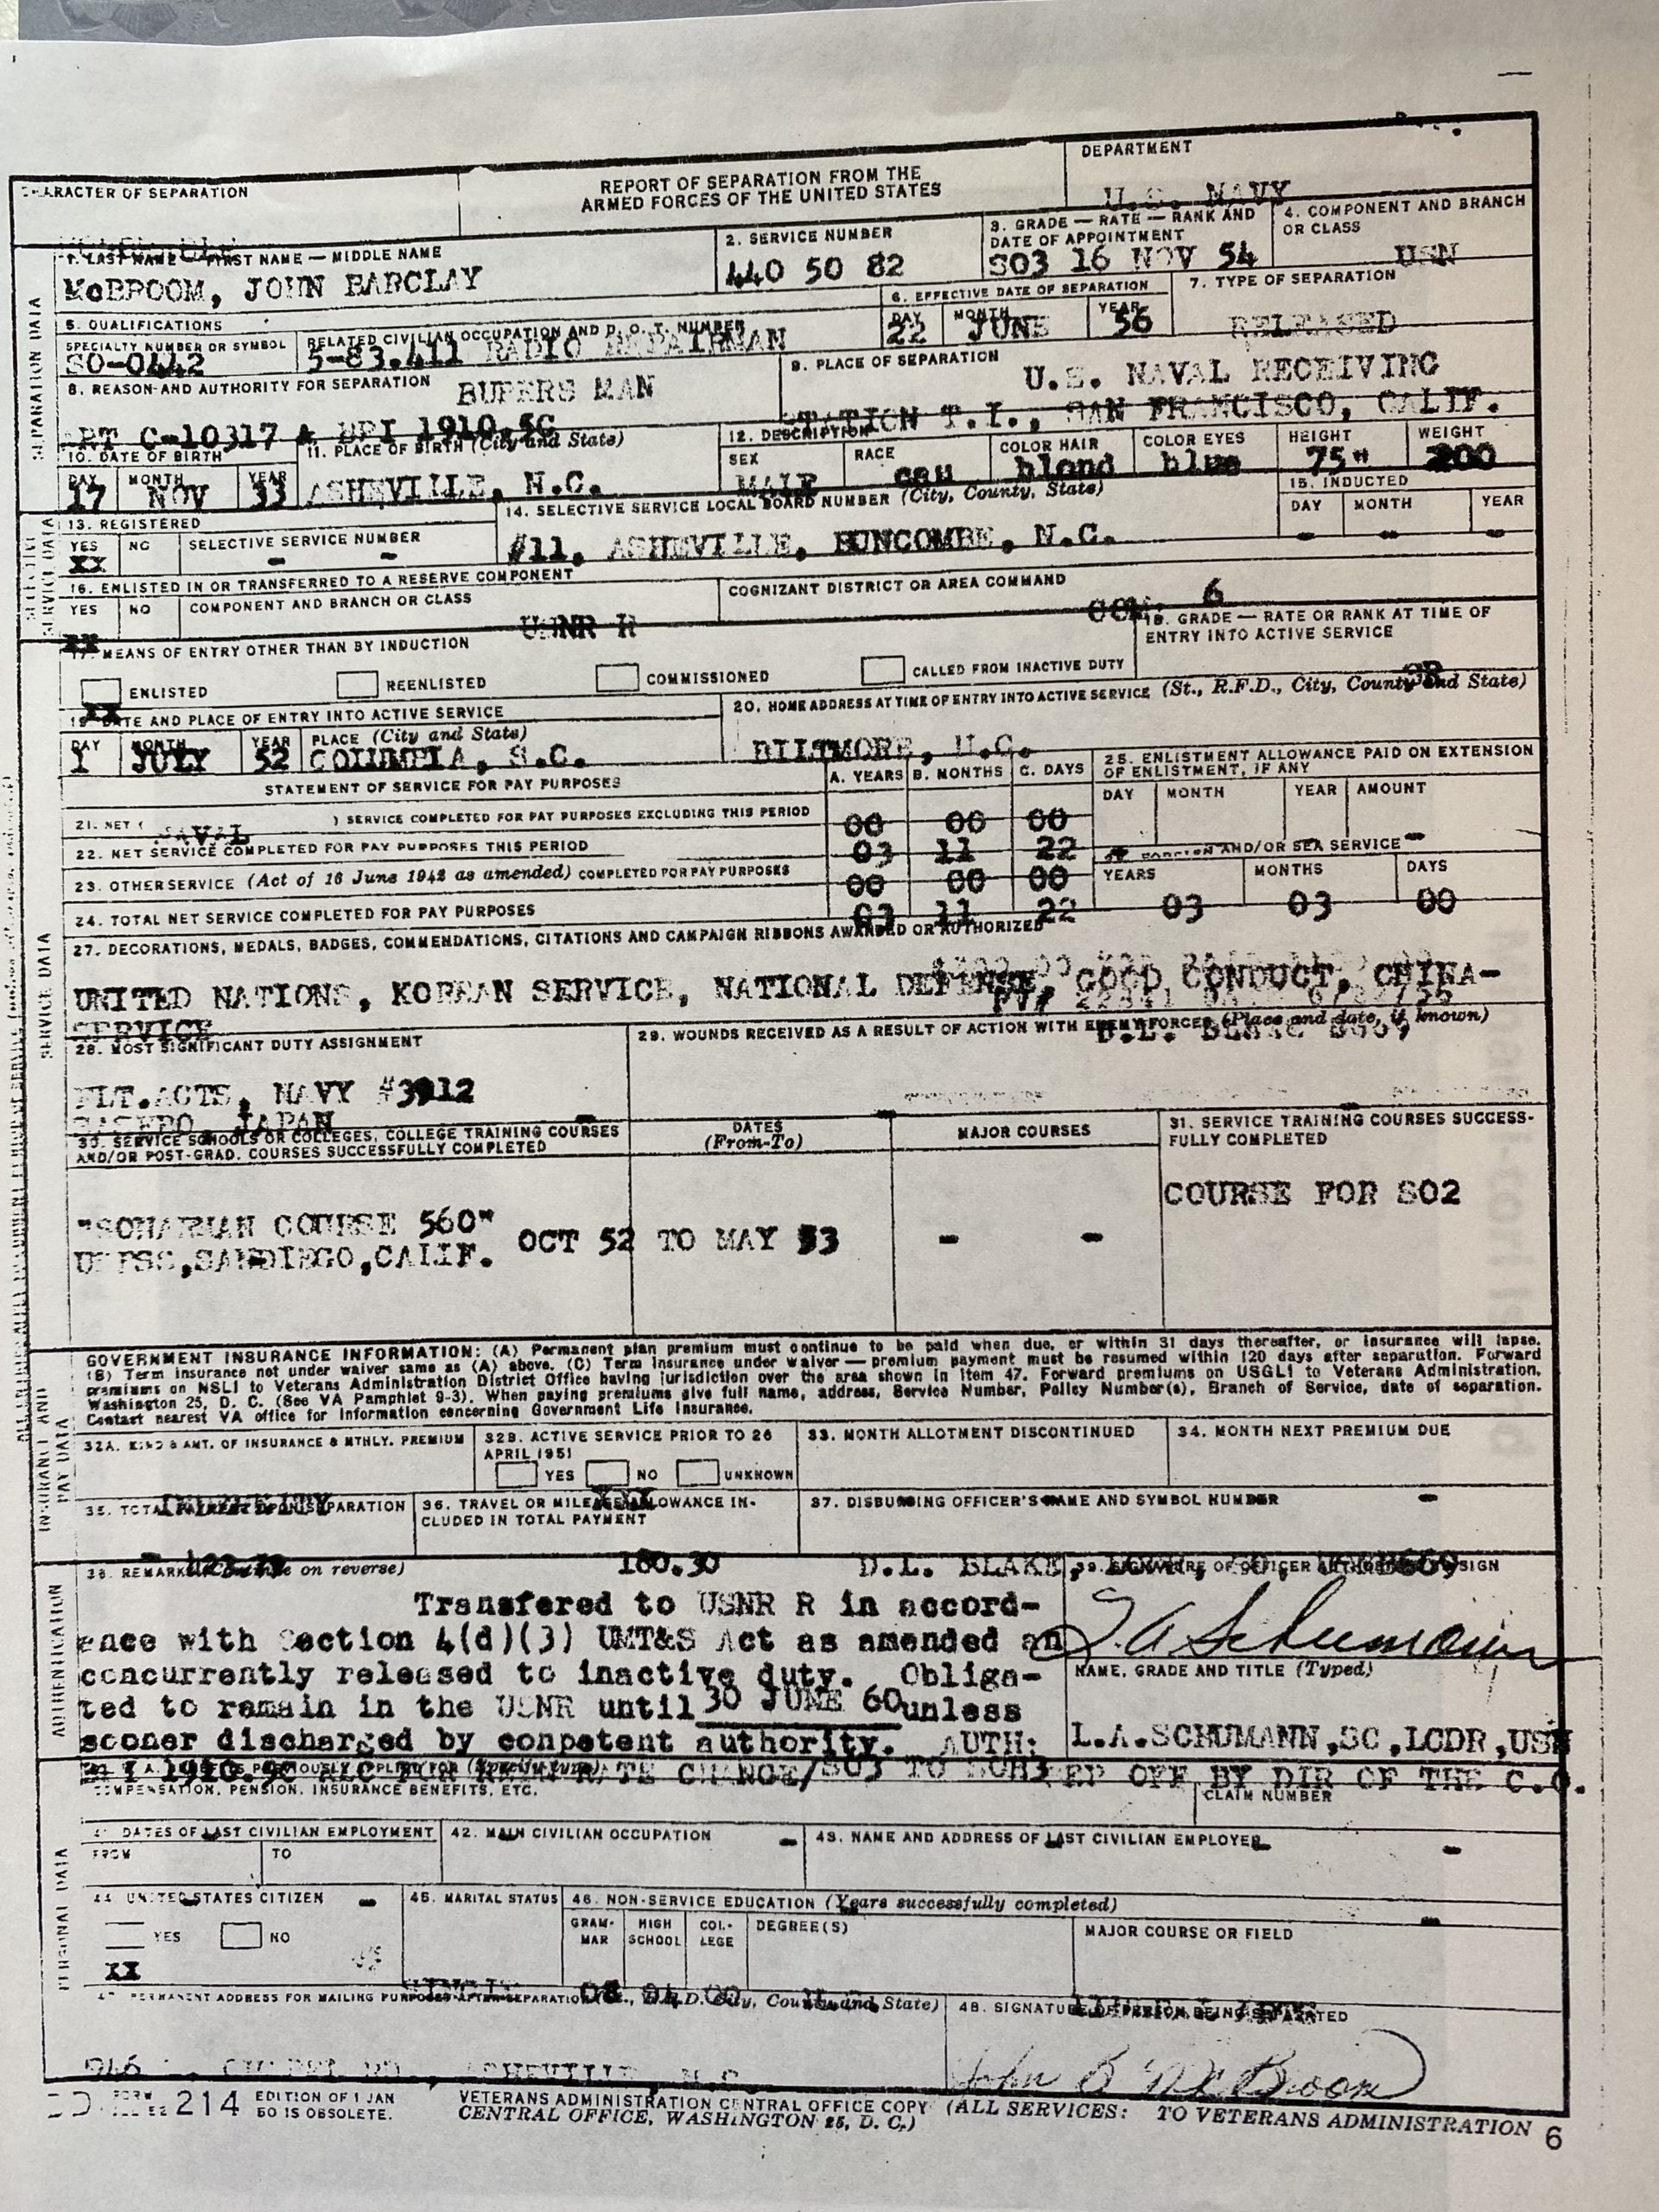 DEPARTMENT
CHARACTER OF SEPARATION
REPORT OF SEPARATION FROM THE
ARMED FORCES OF THE UNITED STATES
U.S. NAVY
1. LAST NAME — FIRST NAME — MIDDLE NAME
McBROOM, JOHN BARCLAY
2. SERVICE NUMBER
440 50 82
3. GRADE — RATE — RANK AND
DATE OF APPOINTMENT
SO3 16 NOV 54
4. COMPONENT AND BRANCH
OR CLASS
USN
SEPARATION DATA
5. QUALIFICATIONS
SPECIALTY NUMBER OR SYMBOL
SO-0442
RELATED CIVILIAN OCCUPATION AND D. O. T. NUMBER
5-83.411 RADIO REPAIRMAN
6. EFFECTIVE DATE OF SEPARATION
DAY MONTH YEAR
22 JUNE 56
7. TYPE OF SEPARATION
RELEASED
8. REASON AND AUTHORITY FOR SEPARATION
BUPERS MAN
ART C-10317 & BPI 1910.5C
9. PLACE OF SEPARATION
U.S. NAVAL RECEIVING
STATION T.I., SAN FRANCISCO, CALIF.
10. DATE OF BIRTH
DAY MONTH YEAR
17 NOV 33
11. PLACE OF BIRTH (City and State)
ASHEVILLE, N.C.
12. DESCRIPTION
SEX RACE COLOR HAIR COLOR EYES HEIGHT WEIGHT
MALE cau blond blue 75" 200
SELECTIVE SERVICE DATA
13. REGISTERED
YES NO SELECTIVE SERVICE NUMBER
XX - -
14. SELECTIVE SERVICE LOCAL BOARD NUMBER (City, County, State)
#11, ASHEVILLE, BUNCOMBE, N.C.
15. INDUCTED
DAY MONTH YEAR
- - -
16. ENLISTED IN OR TRANSFERRED TO A RESERVE COMPONENT
YES NO COMPONENT AND BRANCH OR CLASS
XX USNR R
COGNIZANT DISTRICT OR AREA COMMAND
6
17. MEANS OF ENTRY OTHER THAN BY INDUCTION
ENLISTED REENLISTED COMMISSIONED CALLED FROM INACTIVE DUTY
XX
18. GRADE — RATE OR RANK AT TIME OF
ENTRY INTO ACTIVE SERVICE
SR
19. DATE AND PLACE OF ENTRY INTO ACTIVE SERVICE
DAY MONTH YEAR PLACE (City and State)
1 JULY 52 COLUMBIA, S.C.
20. HOME ADDRESS AT TIME OF ENTRY INTO ACTIVE SERVICE (St., R.F.D., City, County and State)
BILTMORE, N.C.
SERVICE DATA
STATEMENT OF SERVICE FOR PAY PURPOSES
A. YEARS B. MONTHS C. DAYS
21. NET ( NAVAL ) SERVICE COMPLETED FOR PAY PURPOSES EXCLUDING THIS PERIOD
00 00 00
22. NET SERVICE COMPLETED FOR PAY PURPOSES THIS PERIOD
03 11 22
23. OTHER SERVICE (Act of 16 June 1942 as amended) COMPLETED FOR PAY PURPOSES
00 00 00
24. TOTAL NET SERVICE COMPLETED FOR PAY PURPOSES
03 11 22
25. ENLISTMENT ALLOWANCE PAID ON EXTENSION
OF ENLISTMENT, IF ANY
DAY MONTH YEAR AMOUNT
-
FOREIGN AND/OR SEA SERVICE
YEARS MONTHS DAYS
03 03 00
27. DECORATIONS, MEDALS, BADGES, COMMENDATIONS, CITATIONS AND CAMPAIGN RIBBONS AWARDED OR AUTHORIZED
UNITED NATIONS, KOREAN SERVICE, NATIONAL DEFENSE, GOOD CONDUCT, CHINA-
SERVICE
28. MOST SIGNIFICANT DUTY ASSIGNMENT
FLT.ACTS, NAVY #3912
SASEBO, JAPAN
29. WOUNDS RECEIVED AS A RESULT OF ACTION WITH ENEMY FORCES (Place and date, if known)
30. SERVICE SCHOOLS OR COLLEGES, COLLEGE TRAINING COURSES
AND/OR POST-GRAD. COURSES SUCCESSFULLY COMPLETED
DATES
(From-To)
MAJOR COURSES
31. SERVICE TRAINING COURSES SUCCESS-
FULLY COMPLETED
COURSE FOR SO2
"SONARMAN COURSE 560"
SANDIEGO,CALIF.
OCT 52 TO MAY 53
- -
INSURANCE AND PAY DATA
GOVERNMENT INSURANCE INFORMATION: (A) Permanent plan premium must continue to be paid when due, or within 31 days thereafter, or insurance will lapse.
(B) Term insurance not under waiver same as (A) above. (C) Term insurance under waiver — premium payment must be resumed within 120 days after separation. Forward
premiums on NSLI to Veterans Administration District Office having jurisdiction over the area shown in Item 47. Forward premiums on USGLI to Veterans Administration,
Washington 25, D. C. (See VA Pamphlet 9-3). When paying premiums give full name, address, Service Number, Policy Number(s), Branch of Service, date of separation.
Contact nearest VA office for information concerning Government Life Insurance.
32A. KIND & AMT. OF INSURANCE & MTHLY. PREMIUM
INDEMNITY
32B. ACTIVE SERVICE PRIOR TO 26
APRIL 1951
YES NO UNKNOWN
33. MONTH ALLOTMENT DISCONTINUED
34. MONTH NEXT PREMIUM DUE
-
35. TOTAL PAYMENT UPON SEPARATION
36. TRAVEL OR MILEAGE ALLOWANCE IN-
CLUDED IN TOTAL PAYMENT
180.30
37. DISBURSING OFFICER'S NAME AND SYMBOL NUMBER
D.L. BLAKE,
AUTHENTICATION
38. REMARKS (Continue on reverse)
Transfered to USNR R in accord-
ence with Section 4(d)(3) UMT&S Act as amended an
concurrently released to inactive duty. Obliga-
ted to remain in the USNR until 30 JUNE 60 unless
sooner discharged by conpetent authority. AUTH:
RATE CHANGE/SO3 TO
39. SIGNATURE OF OFFICER AUTHORIZED TO SIGN
L.A. Schumann
NAME, GRADE AND TITLE (Typed)
L.A.SCHUMANN,SC,LCDR,USN
OFF BY DIR OF THE C.O.
COMPENSATION, PENSION, INSURANCE BENEFITS, ETC.
CLAIM NUMBER
PERSONAL DATA
41. DATES OF LAST CIVILIAN EMPLOYMENT
FROM TO
42. MAIN CIVILIAN OCCUPATION
43. NAME AND ADDRESS OF LAST CIVILIAN EMPLOYER
- - -
44. UNITED STATES CITIZEN
YES NO
XX
45. MARITAL STATUS
SINGLE
46. NON-SERVICE EDUCATION (Years successfully completed)
GRAM-
MAR
HIGH
SCHOOL
COL-
LEGE
DEGREE(S)
MAJOR COURSE OR FIELD
47. PERMANENT ADDRESS FOR MAILING PURPOSES AFTER SEPARATION (St., R.F.D. City, County and State)
RD., ASHEVILLE, N.C.
48. SIGNATURE OF PERSON BEING SEPARATED
John B McBroom
DD FORM 214
EDITION OF 1 JAN
50 IS OBSOLETE.
VETERANS ADMINISTRATION CENTRAL OFFICE COPY (ALL SERVICES: TO VETERANS ADMINISTRATION
CENTRAL OFFICE, WASHINGTON 25, D. C.)
6